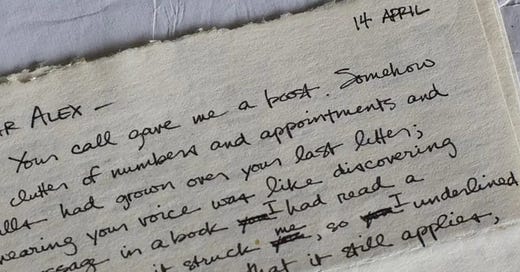 14 APRIL
AR ALEX –
Your call gave me a boost. Somehow
clutter of numbers and appointments and
had grown over your last letter;
hearing your voice was like discovering
ssage in a book I had read a
it struck me, so I underlined
that it still applies,